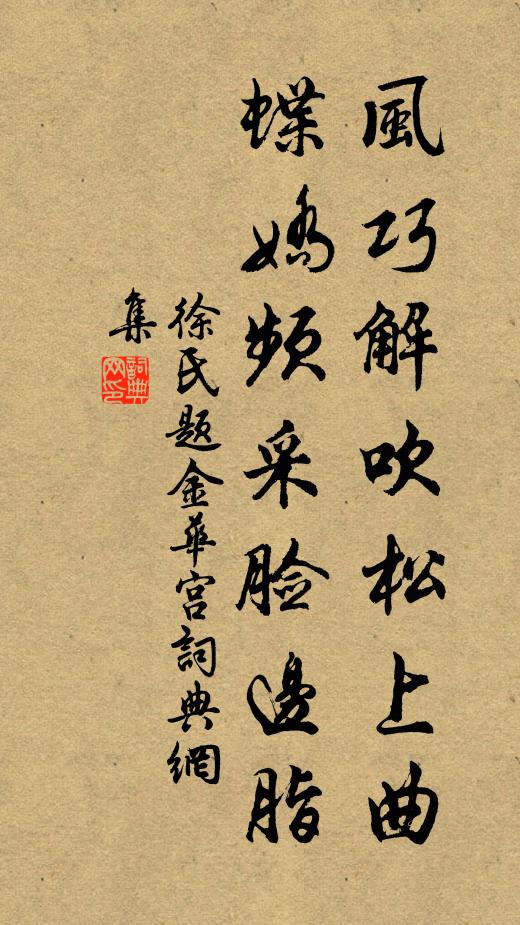 風巧解吹松上曲
蝶嬌頻采脸邊脂
徐氏题金華宫詞典網
集
詞典
网印